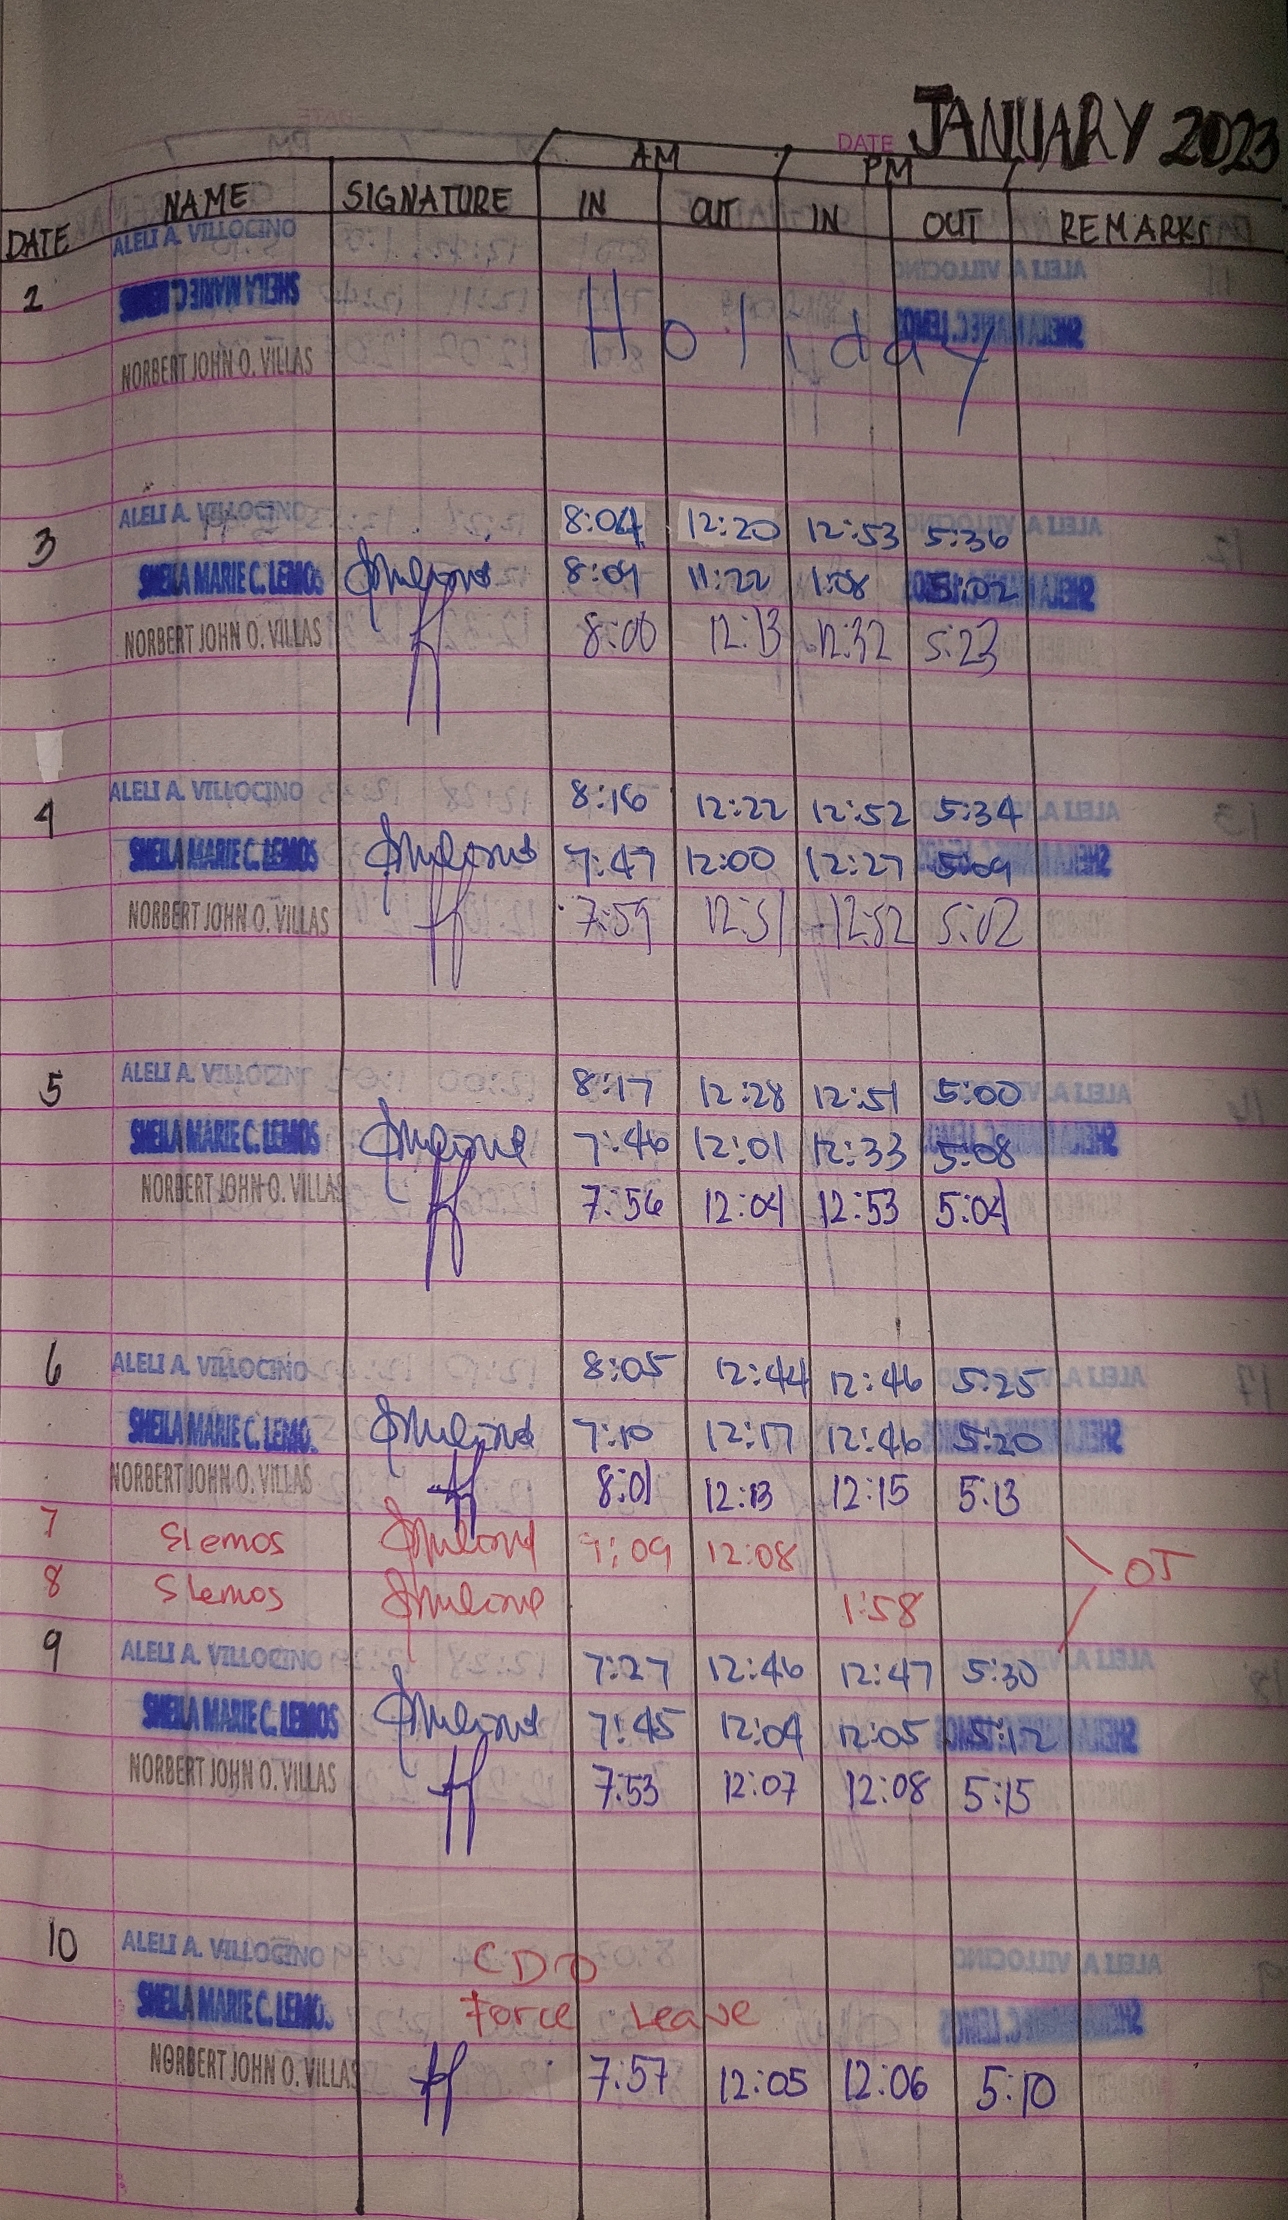 DATE JANUARY 2023
AM PM
DATE NAME SIGNATURE IN OUT IN OUT REMARKS
ALELI A. VILLOCINO
2 SHEILA MARIE C. LEMOS Holiday
NORBERT JOHN O. VILLAS
3 ALELI A. VILLOCINO 8:04 12:20 12:53 5:36
SHEILA MARIE C. LEMOS 8:09 11:22 1:08 5:02
NORBERT JOHN O. VILLAS 8:00 12:13 12:32 5:23
4 ALELI A. VILLOCINO 8:16 12:22 12:52 5:34
SHEILA MARIE C. LEMOS 7:47 12:00 12:27 5:09
NORBERT JOHN O. VILLAS 7:59 12:51 12:52 5:02
5 ALELI A. VILLOCINO 8:17 12:28 12:51 5:00
SHEILA MARIE C. LEMOS 7:46 12:01 12:33 5:08
NORBERT JOHN O. VILLAS 7:56 12:04 12:53 5:04
6 ALELI A. VILLOCINO 8:05 12:44 12:46 5:25
SHEILA MARIE C. LEMO. 7:10 12:17 12:46 5:20
NORBERT JOHN O. VILLAS 8:01 12:13 12:15 5:13
7 Slemos 9:09 12:08
OT
8 Slemos 1:58
9 ALELI A. VILLOCINO 7:27 12:46 12:47 5:30
SHEILA MARIE C. LEMOS 7:45 12:04 12:05 5:12
NORBERT JOHN O. VILLAS 7:53 12:07 12:08 5:15
10 ALELI A. VILLOCINO CDO
SHEILA MARIE C. LEMO. Force Leave
NORBERT JOHN O. VILLAS 7:57 12:05 12:06 5:10